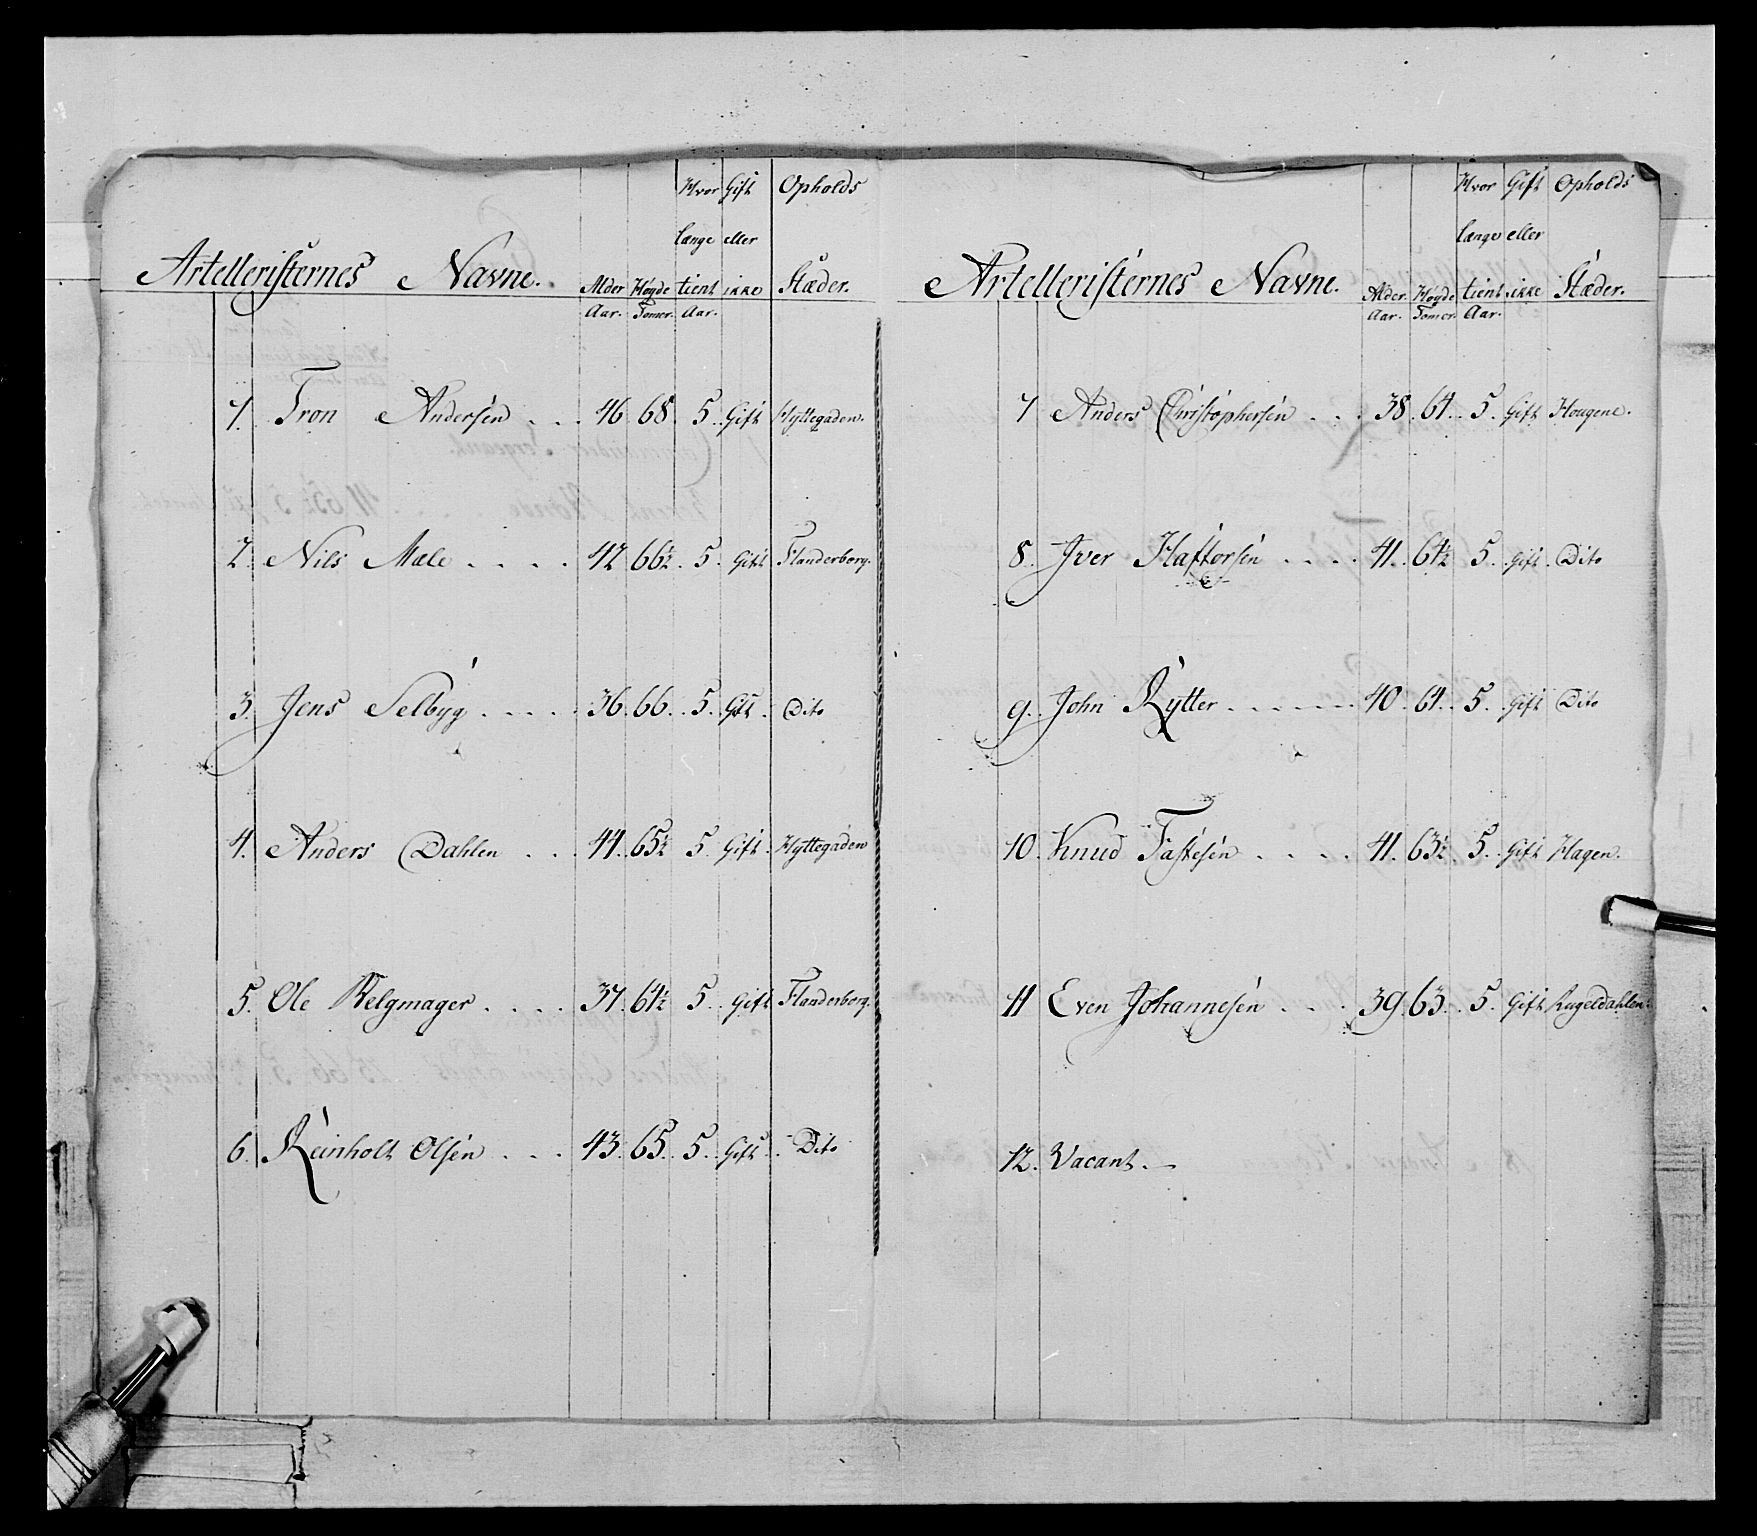 Hvor Gift Opholds
længe eller
Artelleristernes Navne. Alder Høyde tient ikke Stæder.
Aar. Tomer. Aar.
1. Tron Andersen . . . 46 68. 5. Gift Hyttegaden.
2. Nils Male . . . . 42 66½. 5. Gift Flanderborg.
3. Jens Selbyg . . . . 36. 66. 5. Gift. Dito
4. Anders Dahlen . . . 44. 65½ 5. Gift. Hyttegaden
5. Ole Felgmager . . . . 37. 64½ 5. Gift Flanderborg.
6. Reinholt Olsen . . . 43. 65. 5. Gift. Dito
Hvor Gift Opholds
længe eller
Artelleristernes Navne. Alder Høyde tient ikke Stæder.
Aar. Tomer. Aar.
7 Anders Christophersen . . . 38. 64. 5. Gift Hougene.
8. Iver Haftorsen . . . . 41. 64½ 5. Gift. Dito
9. John Rytter . . . . . . 40. 64. 5. Gift Dito
10. Knud Tastesen . . . . 41. 63½ 5. Gift Hagen.
11 Even Johannesen . . . 39. 63. 5. Gift Rugeldahlen.
12. Vacant. –